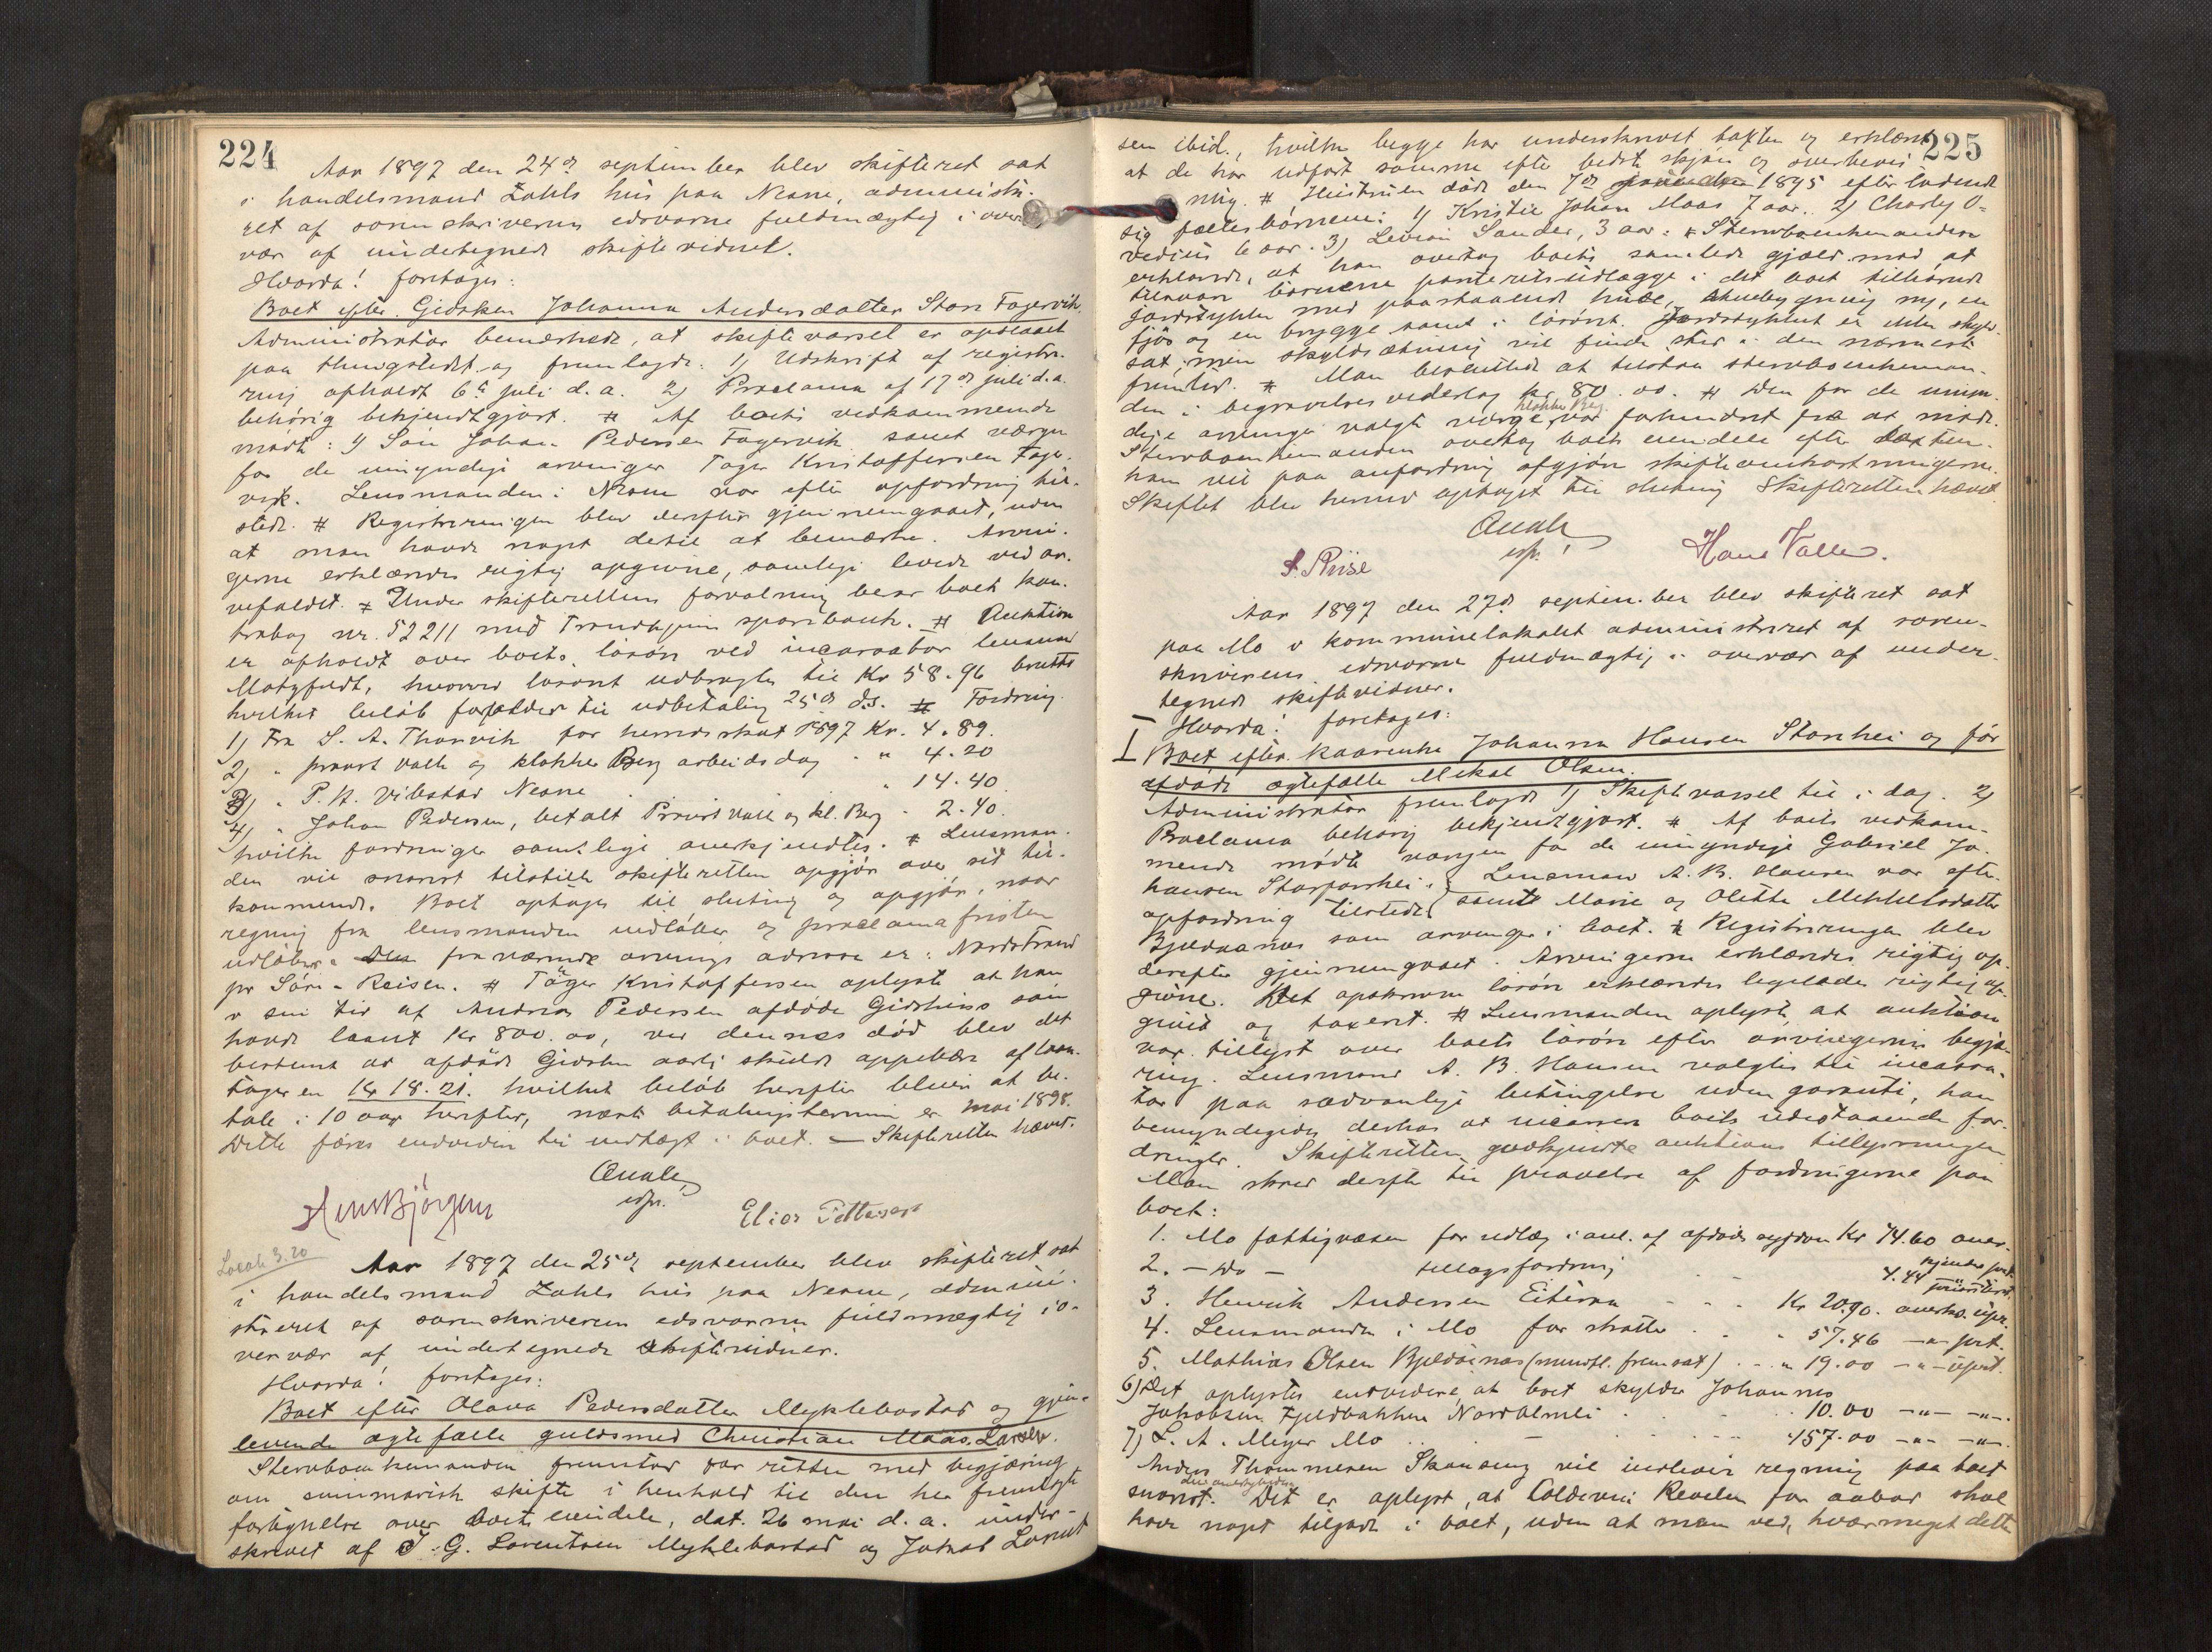 224
Aar 1897 den 24de september blev skifteret sat
i handelsmand Zahls hus paa Nesne, administre-
ret af sorenskriverens edsvorne fuldmægtig i over-
vær af undertegnede skiftevidner.
Hvorda! foretoges:
Boet efter Gidsken Johanna Andersdatter Stor Fagervik.
Administrator bemærkede, at skiftevarsel er opslaaet
paa thingstedet og fremlagde: 1) Udskrift af registre-
ring afholdt 6te juli d.a. 2) Proclama af 17de juli d.a.
behörig bekjendtgjort. # Af boets vedkommende
mödte: 1) Sön Johan Pedersen Fagervik samt værgen
for de umyndige arvinger Tøger Kristoffersen Fager-
vik. Lensmanden i Nesne var efter opfordring til-
stede. # Registreringen blev derefter gjennemgaaet, uden
at man havde noget dertil at bemærke. Arvin-
gerne erklæredes rigtig opgivne, samtlige levede ved ar-
vefaldet. # Under skifterettens forvaltning beror boets kon-
trabog nr. 52211 med Trondhjems sparebank. # Auktion
er afholdt over boets lösöre ved incassator lensmand
Motzfeldt, hvorved lösöret udbragtes til Kr 58.96 brutto
hvilket belöb forfalder til udbetaling 25de ds. # Fordring
1) Fra S. A. Thorvik for hundeskat 1897 Kr. 4.89.
2) " provst Valle og klokker Berg arbeidsdag . " 4.20
3) " P. H. Vibstad Nesne . " 14.40
4) " Johan Pedersen, betalt Provst Valle og kl. Berg " 2.40.
hvilke fordringer samtlige anerkjendtes. # Lensman-
den vil snarest tilstille skifteretten opgjör over sit til-
kommende. Boet optages til slutning og opgjör, naar
regning fra lensmanden indlöber og proclamafristen
udlöber. Den fraværende arvings adresse er: Nordstrand
pr Sörreisen. # Töger Kristoffersen oplyste at han
i sin tid af Andreas Pedersen afdöde Gidskens sön
havde laant Kr 800.00, ved dennes död blev det
bestemt at afdöde Gidsken aarlig skulde oppebære af laan-
tageren Kr 18.21. hvilket belöb herefter bliver at be-
tale i 10 aar herefter, næste betalingstermin er mai 1898.
Dette föres endvidere til indtægt i boet. — Skifteretten hævet.
Qvale
edsv.
Elias Pettersen
Aar 1897 den 25de september blev skifteret sat
i handelsmand Zahls hus paa Nesne, admini-
streret af sorenskriverens edsvorne fuldmægtig i o-
vervær af undertegnede skiftevidner.
Hvorda! foretoges:
Boet efter Olava Pedersdatter Myklebostad og gjen-
levende ægtefælle guldsmed Christian Maas Larsen.
Stervboenkemanden fremstod for retten med begjæring
om summarisk skifte i henhold til den her fremlagte
fortegnelse over boets eiendele, dat. 26 mai d.a. under-
skrevet af J. G. Lorentsen Myklebostad og Jakob Lorent
225
sen ibid., hvilke begge har underskrevet taxten og erklæret
at de har udfört samme efter bedste skjön og overbevis
ning. # Hustruen döde den 7de 1895 efterladende
sig fællesbörnene: 1) Kristie Johan Maas 7 aar. 2) Charly O-
vedius 6 aar. 3) Levion Sander, 3 aar. # Stervboenkemanden
erklærede, at han overtog boets samlede gjæld mod at
börnene panteretsudlægges i det boet tilhörende
jordstykke med paastaaende huse, stuebygning ny, en
fjös og en brygge samt i lösöret. Jordstykket er ikke skyld-
sat, men skyldsætning vil finde sted i den nærmeste
fremtid. # Man besluttede at tilstaa stervboenkeman-
den i begravelsesvederlag kr 80.00. # Den for de umyn-
dige arvinger valgte værge, klokker Berg, var forhindret fra at möde.
Stervboenkemanden overtog boets eiendele efter taxten.
han vil paa anfordring afgjöre skifteomkostningerne.
Skiftet blev hermed optaget til slutning Skifteretten hævet.
Qvale
edsv.
S. Riise
Hans Valle.
Aar 1897 den 27de september blev skifteret sat
paa Mo i kommunelokalet administreret af soren-
skriverens edsvorne fuldmægtig i overvær af under-
tegnede skiftevidner.
Hvorda! foretoges:
I Boet efter kaarenke Johanna Hansen Storhei og för
afdöde ægtefælle Mikal Olsen.
Administrator fremlagde 1) Skiftevarsel til i dag. 2)
Proclama behörig bekjendtgjort. # Af boets vedkom-
mende mödte værgen for de umyndige Gabriel Jo-
hansen Storforshei. Lensmand A. B. Hansen var efter
opfordring tilstede samt Marie og Olette Mikkelsdatter
Bjeldaanes som arvinger i boet. # Registreringen blev
derefter gjennemgaaet. Arvingerne erklæredes rigtig op-
givne. Det opskrevne lösöre erklæredes ligeledes rigtig op-
givet og taxeret. # Lensmanden oplyste, at auktion
var tillyst over boets lösöre efter arvingernes begjæ-
ring. Lensmand A. B. Hansen valgtes til incassa-
tor paa sædvanlige betingelser uden garanti, han
bemyndigedes derhos at incassere boets udestaaende for-
dringer. Skifteretten godkjendte auktions tillysningen
Man skred derefter til prövelse af fordringerne paa
boet:
1. Mo fattigvæsen for udlæg i anl. af afdödes sygdom Kr 74.60 aner-
kjendes prt.
2. — Do — tillægsfordring 4.44 prioritert
3. Henrik Andersen Eiteraa - - - Kr 20.90. anerkj. upr.
4. Lensmanden i Mo for skatter . . " 57.46 —"— prt.
5. Mathias Olsen Bjeldaanes (mundtl. fremsat) . - " 19.00 —"— uprt.
6) Det oplystes endvidere, at boet skylder Johannes
Jakobsen Fjeldbakken Nordalmli . . . 10.00 —"— —"—.
7) L. A. Meyer Mo . . - - - - - 457.00 —"— —"—.
Anders Thommesen Skonseng vil indlevere regning paa boet
snarest. Det er oplyst, at Coldevin Revelen for aabod skal
have noget tilgode i boet, uden at man ved, hvormeget dette